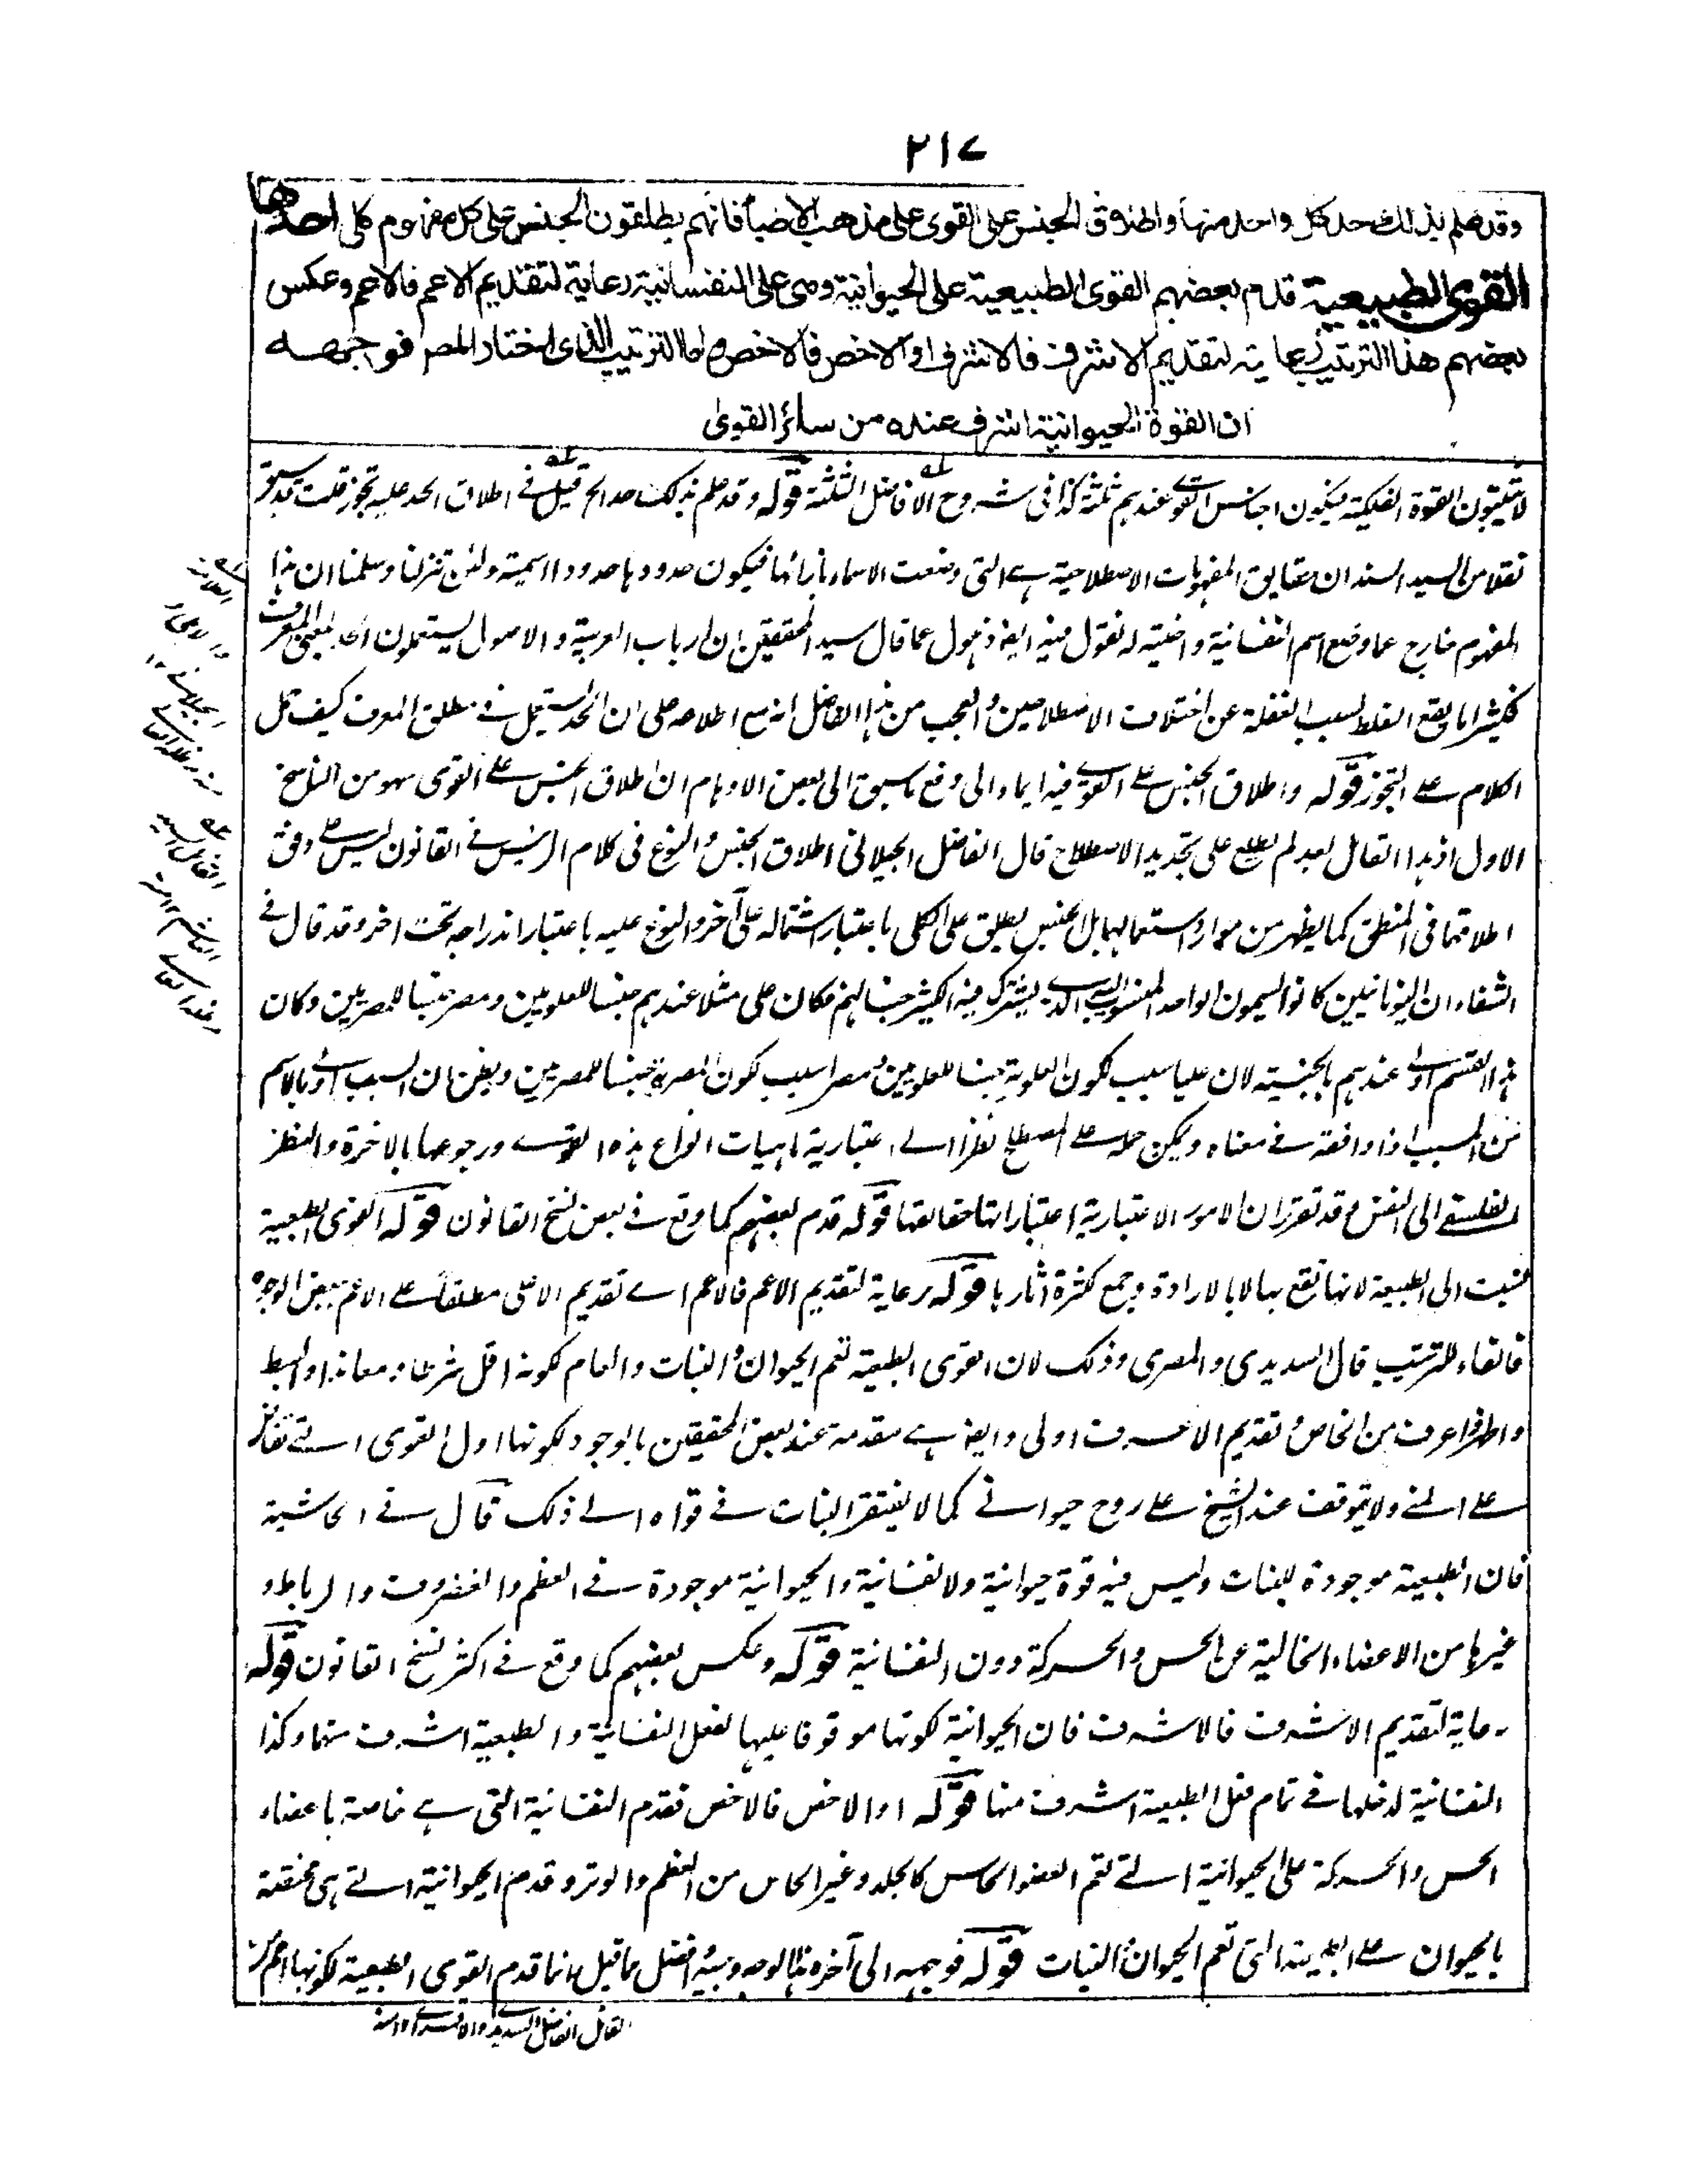 ٢١٧
وقد علم بذلك حد كل واحد منها واطلاق الجنس على القوى على مذهب الاطباء فانهم يطلقون الجنس على كل مفهوم كلى احدها
القوى الطبيعية قدم بعضهم القوى الطبيعية على الحيوانية وهى على النفسانية رعاية لتقديم الاعم فالاعم وعكس
بعضهم هذا الترتيب رعاية لتقديم الاشرف فالاشرف او الاخص فالاخص واما الترتيب الذى اختاره المصر فوجهه
ان القوة الحيوانية اشرف عنده من سائر القوى
لا يثبتون القوة الفلكية فيكون اجناس القوى عندهم ثلثة كذا فى شروح الافاضل الثلثة قوله وقد علم بذلك حد الخ قيل فى اطلاق الحد عليه تجوز قلت قد سبق
نقلا من السيد السند ان حقايق المفهومات الاصطلاحية هى التى وضعت الاسماء بازائها فيكون حدودها حدودا اسمية ولئن تنزلنا وسلمنا ان هذا
المفهوم خارج عما وضع اسم النفسانية واختيه له نقول فيه ايضا ذهول عما قال سيد المحققين ان ارباب العربية والاصول يستعملون الحد بمعنى المعرف
فكثيرا ما يقع الغلط بسبب الغفلة عن اختلاف الاصطلاحين والعجب من هذا الفاضل انه مع اطلاعه على ان الحد يستعمل فى مطلق المعرف كيف حمل
الكلام على التجوز قوله واطلاق الجنس على القوى فيه ايماء الى دفع ما سبق الى بعض الاوهام ان اطلاق الجنس على القوى سهو من الناسخ
الاول اذ هذا القائل بعد لم يطلع على تجديد الاصطلاح قال الفاضل الجيلانى اطلاق الجنس والنوع فى كلام الرئيس فى القانون ليس على وفق
اطلاقهما فى المنطق كما يظهر من موارد استعمالهما بل الجنس يطلق على الكلى باعتبار اشتماله على آخر والنوع عليه باعتبار اندراجه تحت اخر وقد قال فى
الشفاء ان اليونانيين كانوا يسمون الواحد المنسوب اليه الذى يشترك فيه الكثير جنسا لهم فكان على مثلا عندهم جنسا للعلويين ومصر جنسا للمصريين وكان
هذا القسم اولى عندهم بالجنسية لان عليا سبب لكون العلوية جنسا للعلويين ومصر سبب لكون المصرية جنسا للمصريين ويظن ان السبب اولى بالاسم
من المسبب اذا وافقه فى معناه ويمكن حمله على المصطلح نظرا الى اعتبارية ماهيات انواع هذه القوى ورجوعها بالاخرة والنظر
الفلسفى الى النفس وقد تقرر ان الامور الاعتبارية اعتباراتها حقائقها قوله قدم بعضهم كما وقع فى بعض نسخ القانون قوله القوى الطبيعية
نسبت الى الطبيعة لانها تقع بها لا بالارادة وجمع لكثرة آثارها قوله رعاية لتقديم الاعم فالاعم اى تقديم الاعلى مطلقا على الاعم ببعض الوجوه
فالفاء للترتيب قال السديدى والمصرى وذلك لان القوى الطبيعية تعم الحيوان والنبات والعام لكونه اقل شرطا ومعاندا وابسط
واظهر اعرف من الخاص وتقديم الاعرف اولى وايضا هى مقدمة عند بعض المحققين بالوجود لكونها اول القوى التى تفائض
على المنى ولا يتوقف عند الشيخ على روح حيوانى كما لا يفتقر النبات فى قواه الى ذلك قال فى الحاشية
فان الطبيعية موجودة للنبات وليس فيه قوة حيوانية ولا نفسانية والحيوانية موجودة فى العظم والغضروف والرباط و
غيرها من الاعضاء الخالية عن الحس والحركة دون النفسانية قوله وعكس بعضهم كما وقع فى اكثر نسخ القانون قوله
رعاية لتقديم الاشرف فالاشرف فان الحيوانية لكونها موقوفا عليها لفعل النفسانية والطبيعية اشرف منهما وكذا
النفسانية لدخلها فى تمام فعل الطبيعية اشرف منها قوله او الاخص فالاخص فقدم النفسانية التى هى خاصة باعضاء
الحس والحركة على الحيوانية التى تعم العضو الحاس كالجلد وغير الحاس من العظم والوتر وقدم الحيوانية التى هى مختصة
بالحيوان على الطبيعية التى تعم الحيوان والنبات قوله فوجهه الى آخره هذا الوجه وجيه افضل مما قيل انما قدم القوى الطبيعية لكونها اعم من
القائل الفاضل السديدى